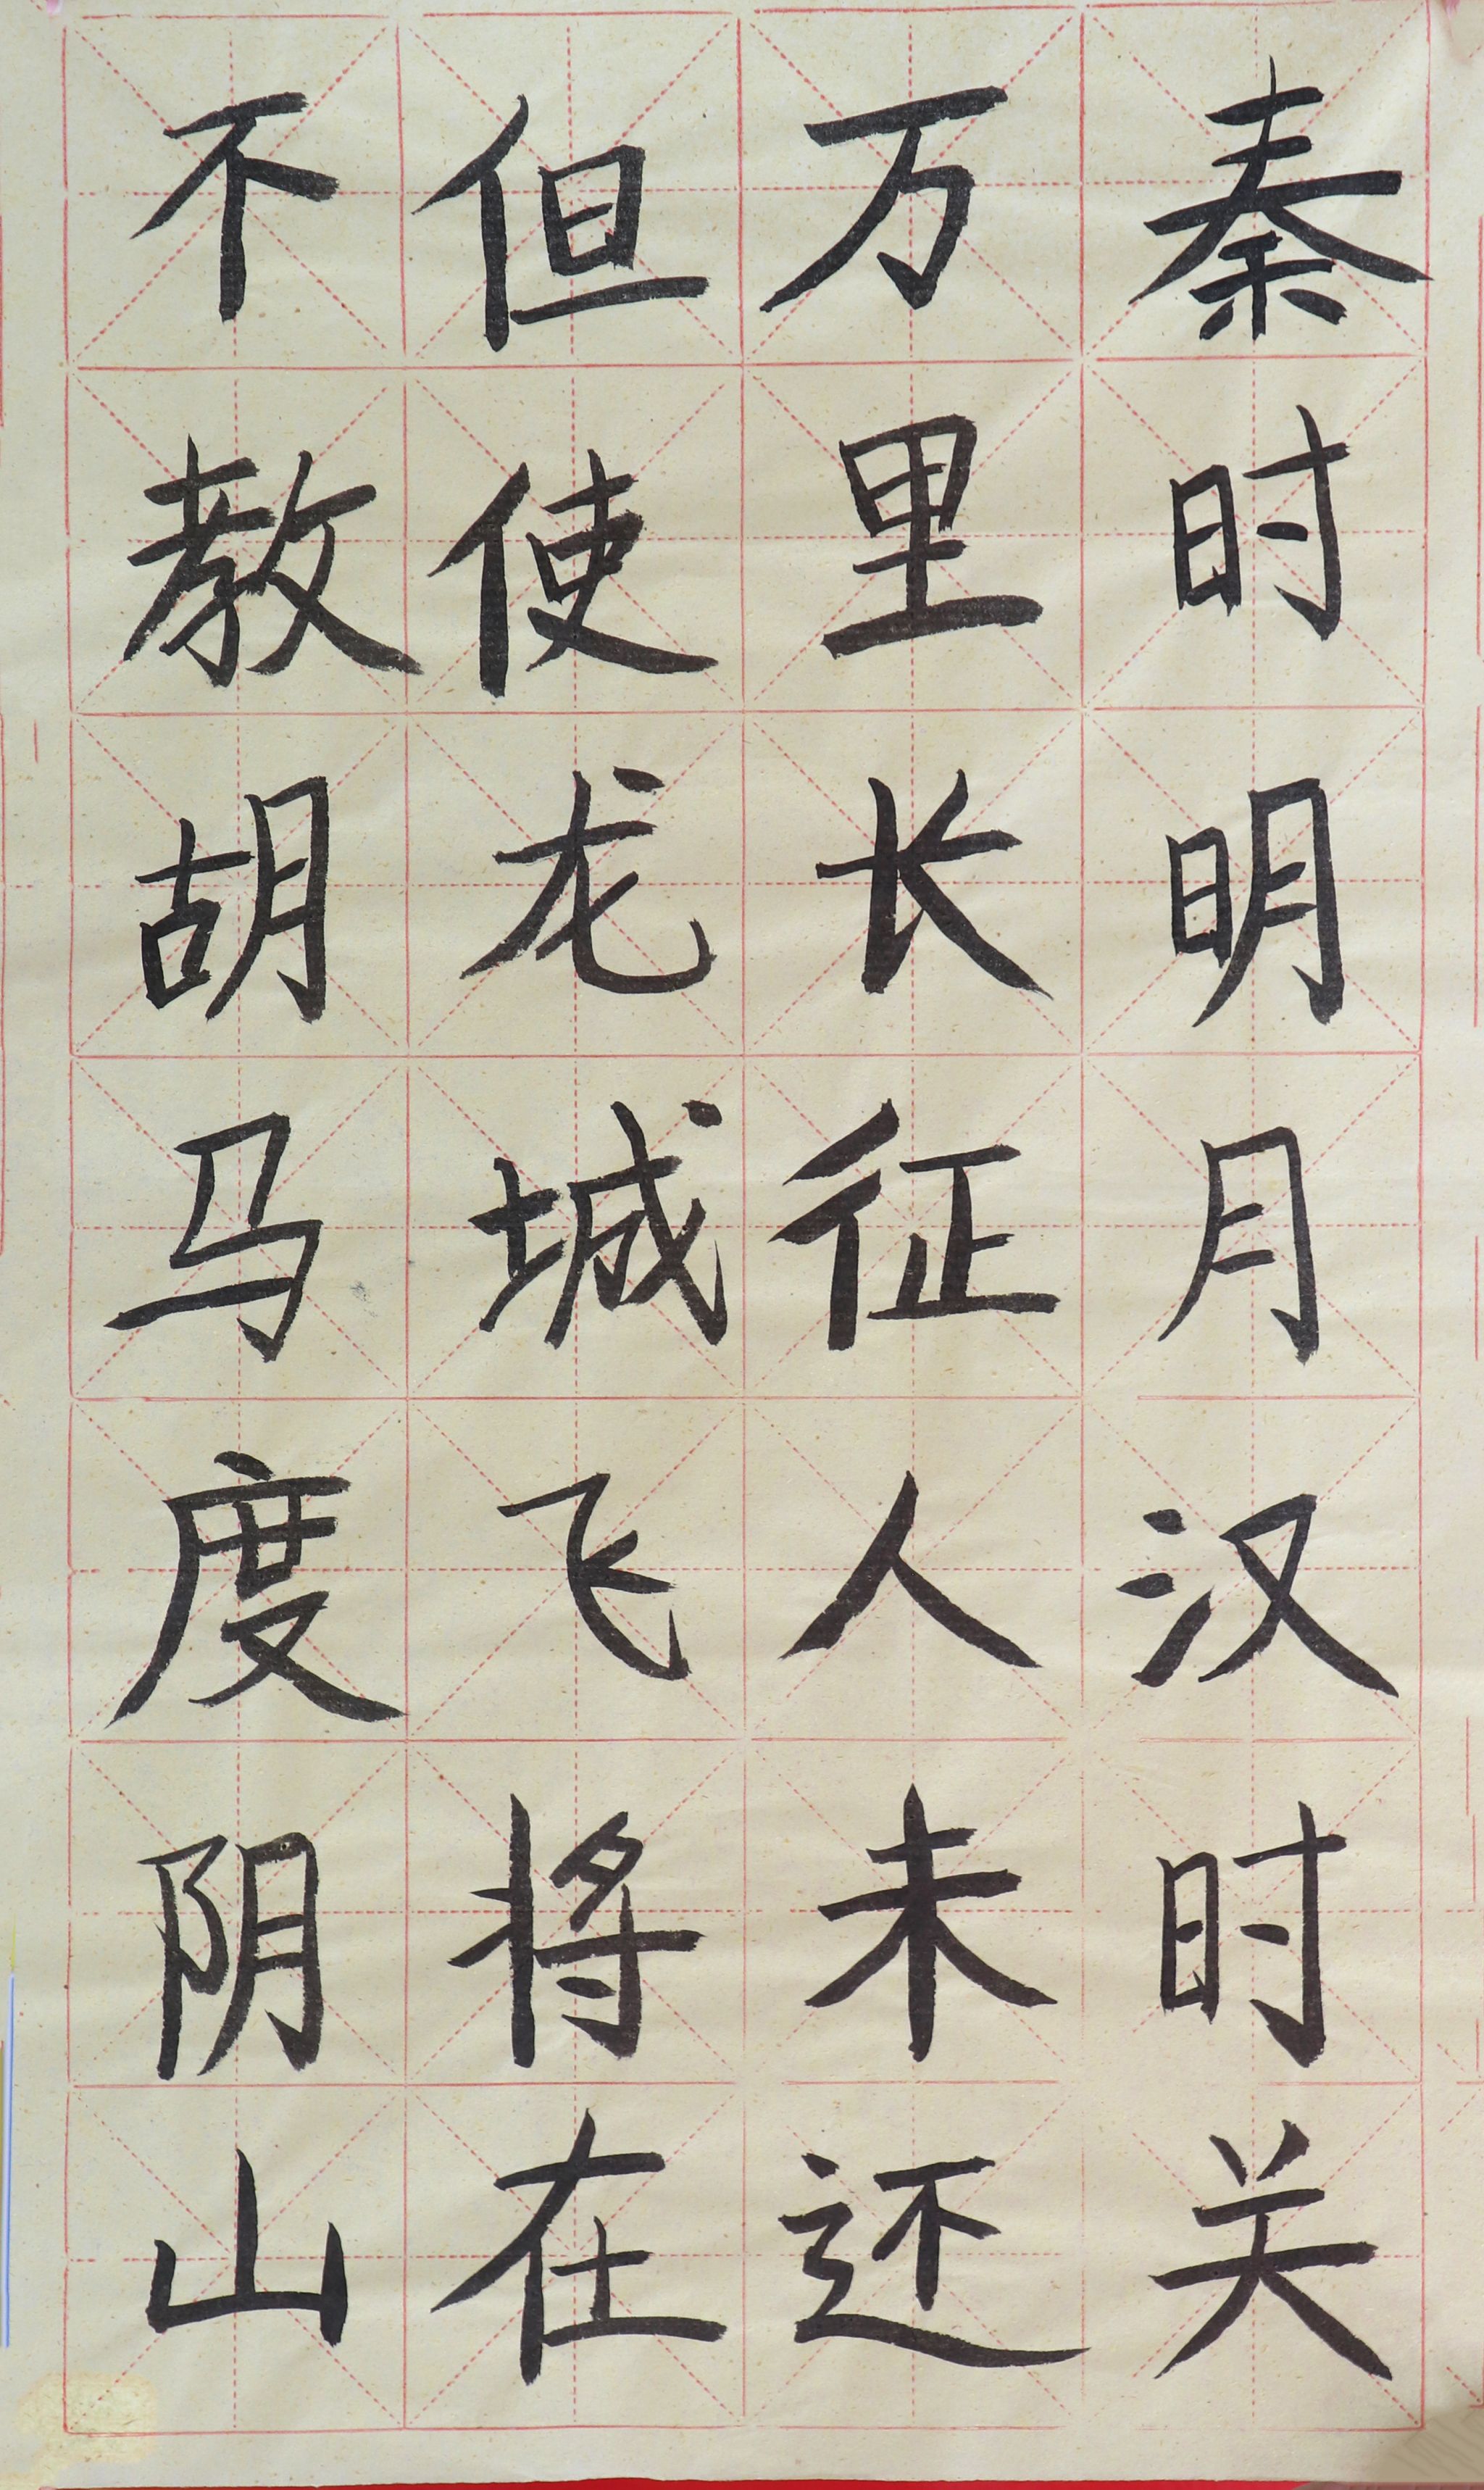 秦时明月汉时关
万里长征人未还
但使龙城飞将在
不教胡马度阴山